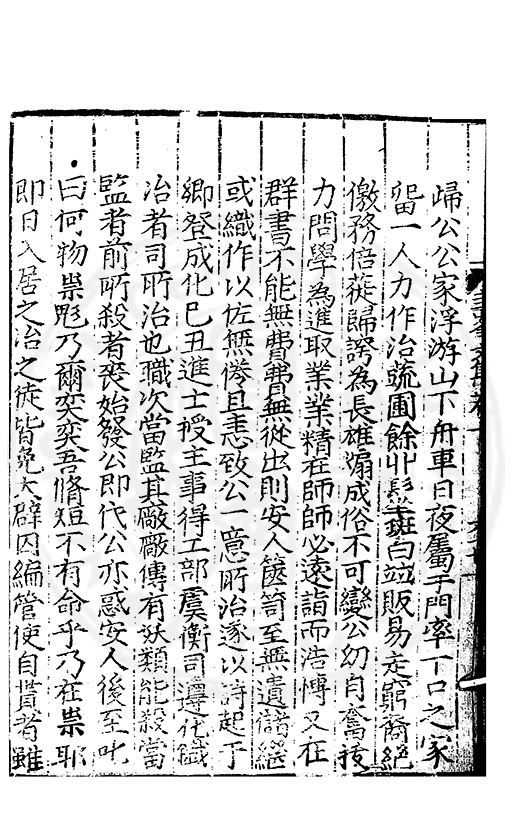 歸公公家浮游山下舟車日夜屬于門率丁口之家
留一人力作治蔬圃餘丱髫斑白竝販易走窮裔絕
儌務倍蓰歸誇為長雄煽成俗不可變公幼自奮拔
力問學為進取業業精在師師必遠詣而浩博又在
群書不能無費費無從出則安人篋笥至無遺儲繼
或織作以佐無倦且恚致公一意所治遂以詩起于
鄉登成化己丑進士授主事得工部虞衡司遵化鐵
冶者司所治也職次當監其廠廠傳有妖類能殺當
監者前所殺者喪始發公即代公亦惑安人後至叱
曰何物祟乃爾奕奕吾脩短不有命乎乃在祟耶
即日入居之冶之徒皆免大辟囚編管使自贖者雖